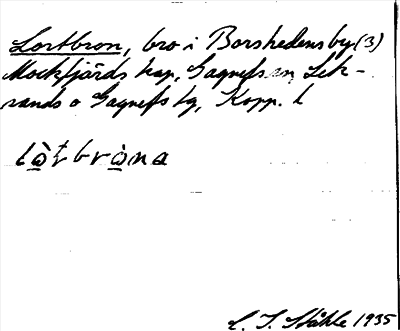 Lortbron, bro i Borshedens by (3)
Mockfjärds kap, Gagnefs sn, Lek-
sands o Gagnefs tg, Kopp. l
C. I. Ståhle 1935